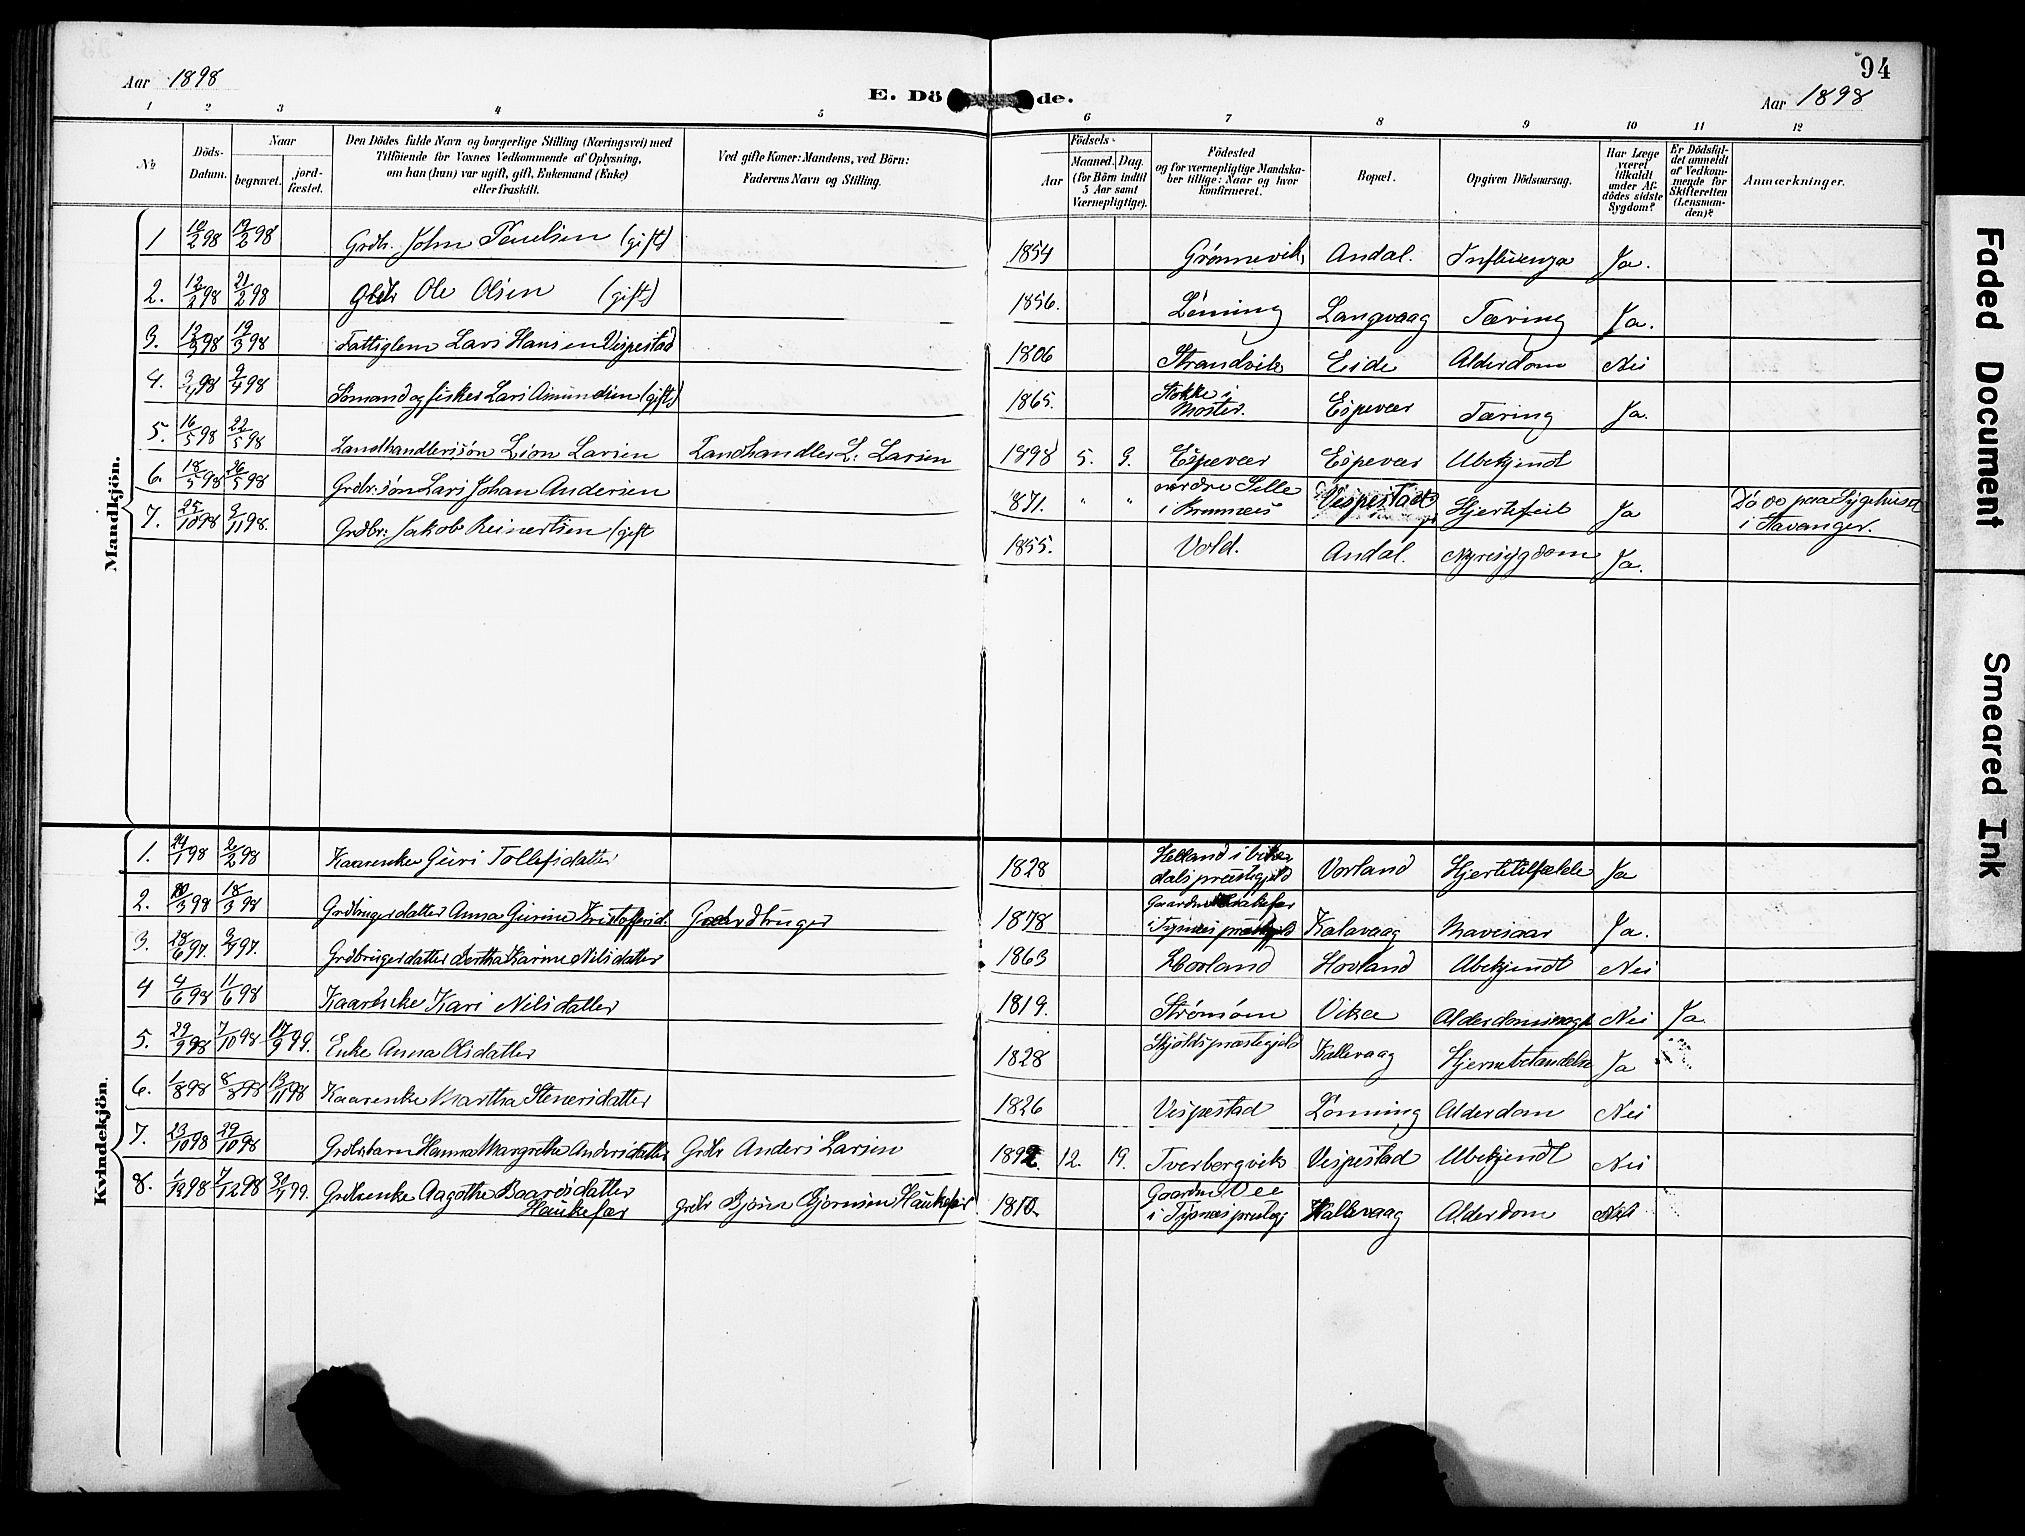 94
Aar 1898
E. Döde.
Aar 1898
1 2 3 4 5 6 7 8 9 10 11 12
No
Döds-Datum.
Naar
begravet.
jord-fæstet.
Den Dödes fulde Navn og borgerlige Stilling (Næringsvei) med
Tilföiende for Voxnes Vedkommende af Oplysning,
om han (hun) var ugift, gift, Enkemand (Enke)
eller fraskilt.
Ved gifte Koner: Mandens, ved Börn:
Faderens Navn og Stilling.
Födsels-
Aar
Maaned. Dag.
(for Börn indtil
5 Aar samt
Værnepligtige).
Födested
og for værnepligtige Mandska-
ber tillige: Naar og hvor
konfirmeret.
Bopæl.
Opgiven Dödsaarsag.
Har Læge
været
tilkaldt
under Af-
dödes sidste
Sygdom?
Er Dödsfal-
det anmeldt
af Vedkom-
mende for
Skifteretten
(Lensman-
den)?
Anmærkninger.
Mandkjön.
1 Grdbr. John Paulsen (gift) 1854 Grønnevik Andal. Influenza Ja.
2. 12/2 98 21/2 98 Grdbr Ole Olsen (gift) 1856. Lönning Langvaag Tæring Ja.
3. 12/3 98 19/3 98 Fattiglem Lars Hansen Vespestad 1806 Strandvik Eide Alderdom Nei
4. 3/4 98 9/4 98 Sömand og fisker Lars Amundsen (gift) 1865. Stokke i Moster. Espevær Tæring Ja.
5. 16/5 98 22/5 98 Landhandlersön Lion Larsen Landhandler L. Larsen 1898 5. 9. Espevær Espevær Ubekjendt
6. 18/5 98 26/5 98 Grdbr: søn Lars Johan Andersen 871. " " nordre Selle i Bremnes Vespestad Hjertefeil Ja Dö de paa Sygehuset
i Stavanger.
7. 25/10 98 2/11 98. Grdbr: Jakob Reinertsen (gift 1855. Vold. Andal. Nyresygdom Ja.
Kvindekjön.
1. 24/1 98 2/2 98 Kaarenke Guri Tollefsdatter 1828 Helland i Vike
dals præstegjeld Vorland Hjertetilfælde Ja
2. 10/3 98 18/3 98 Grdbrugerdatter Anna Gurine Kristoffersd. Gaardbruger 1878 Gaarden Haukefær
i Tysnes præstegjeld Kalavaag Mavesaar Ja.
3. 28/6 97. 3/7 97. Grdbrugerdatter Bertha Karine Nilsdatter 1863 Hovland Hovland Ubekjendt Nei
4 4/6 98 11/6 98 Kaarenke Kari Nilsdatter 1819. Strømøen Vika Alderdomssvagh Nei Ja
5. 29/9 98 7/10 98 17/9 99. Enke Anna Olsdatter 1828 Skjolds præstegjeld Kallevaag Hjernebetændelse Ja
6. 1/8 98 8/8 98 13/11 98 Kaarenke Martha Stenersdatter 1826 Vespestad Lönning Alderdom Nei
7. 23/10 98 29/10 98 Grdbrbarn Hanna Margrethe Andersdatter Grdbr Anders Larsen 1892. 12. 19. Tverborgvik Vespestad Ubekjendt Nei
8. 1/12 98 7/12 98 30/1 99. Grdbrenke Aagothe Baardsdatter
Haukefær Grdbr Bjørn Bjørnsen Haukefær 1810 Gaarden Vee
i Tysnes prestegj Kallevaag Alderdom Nei
Faded Document
Smeared Ink